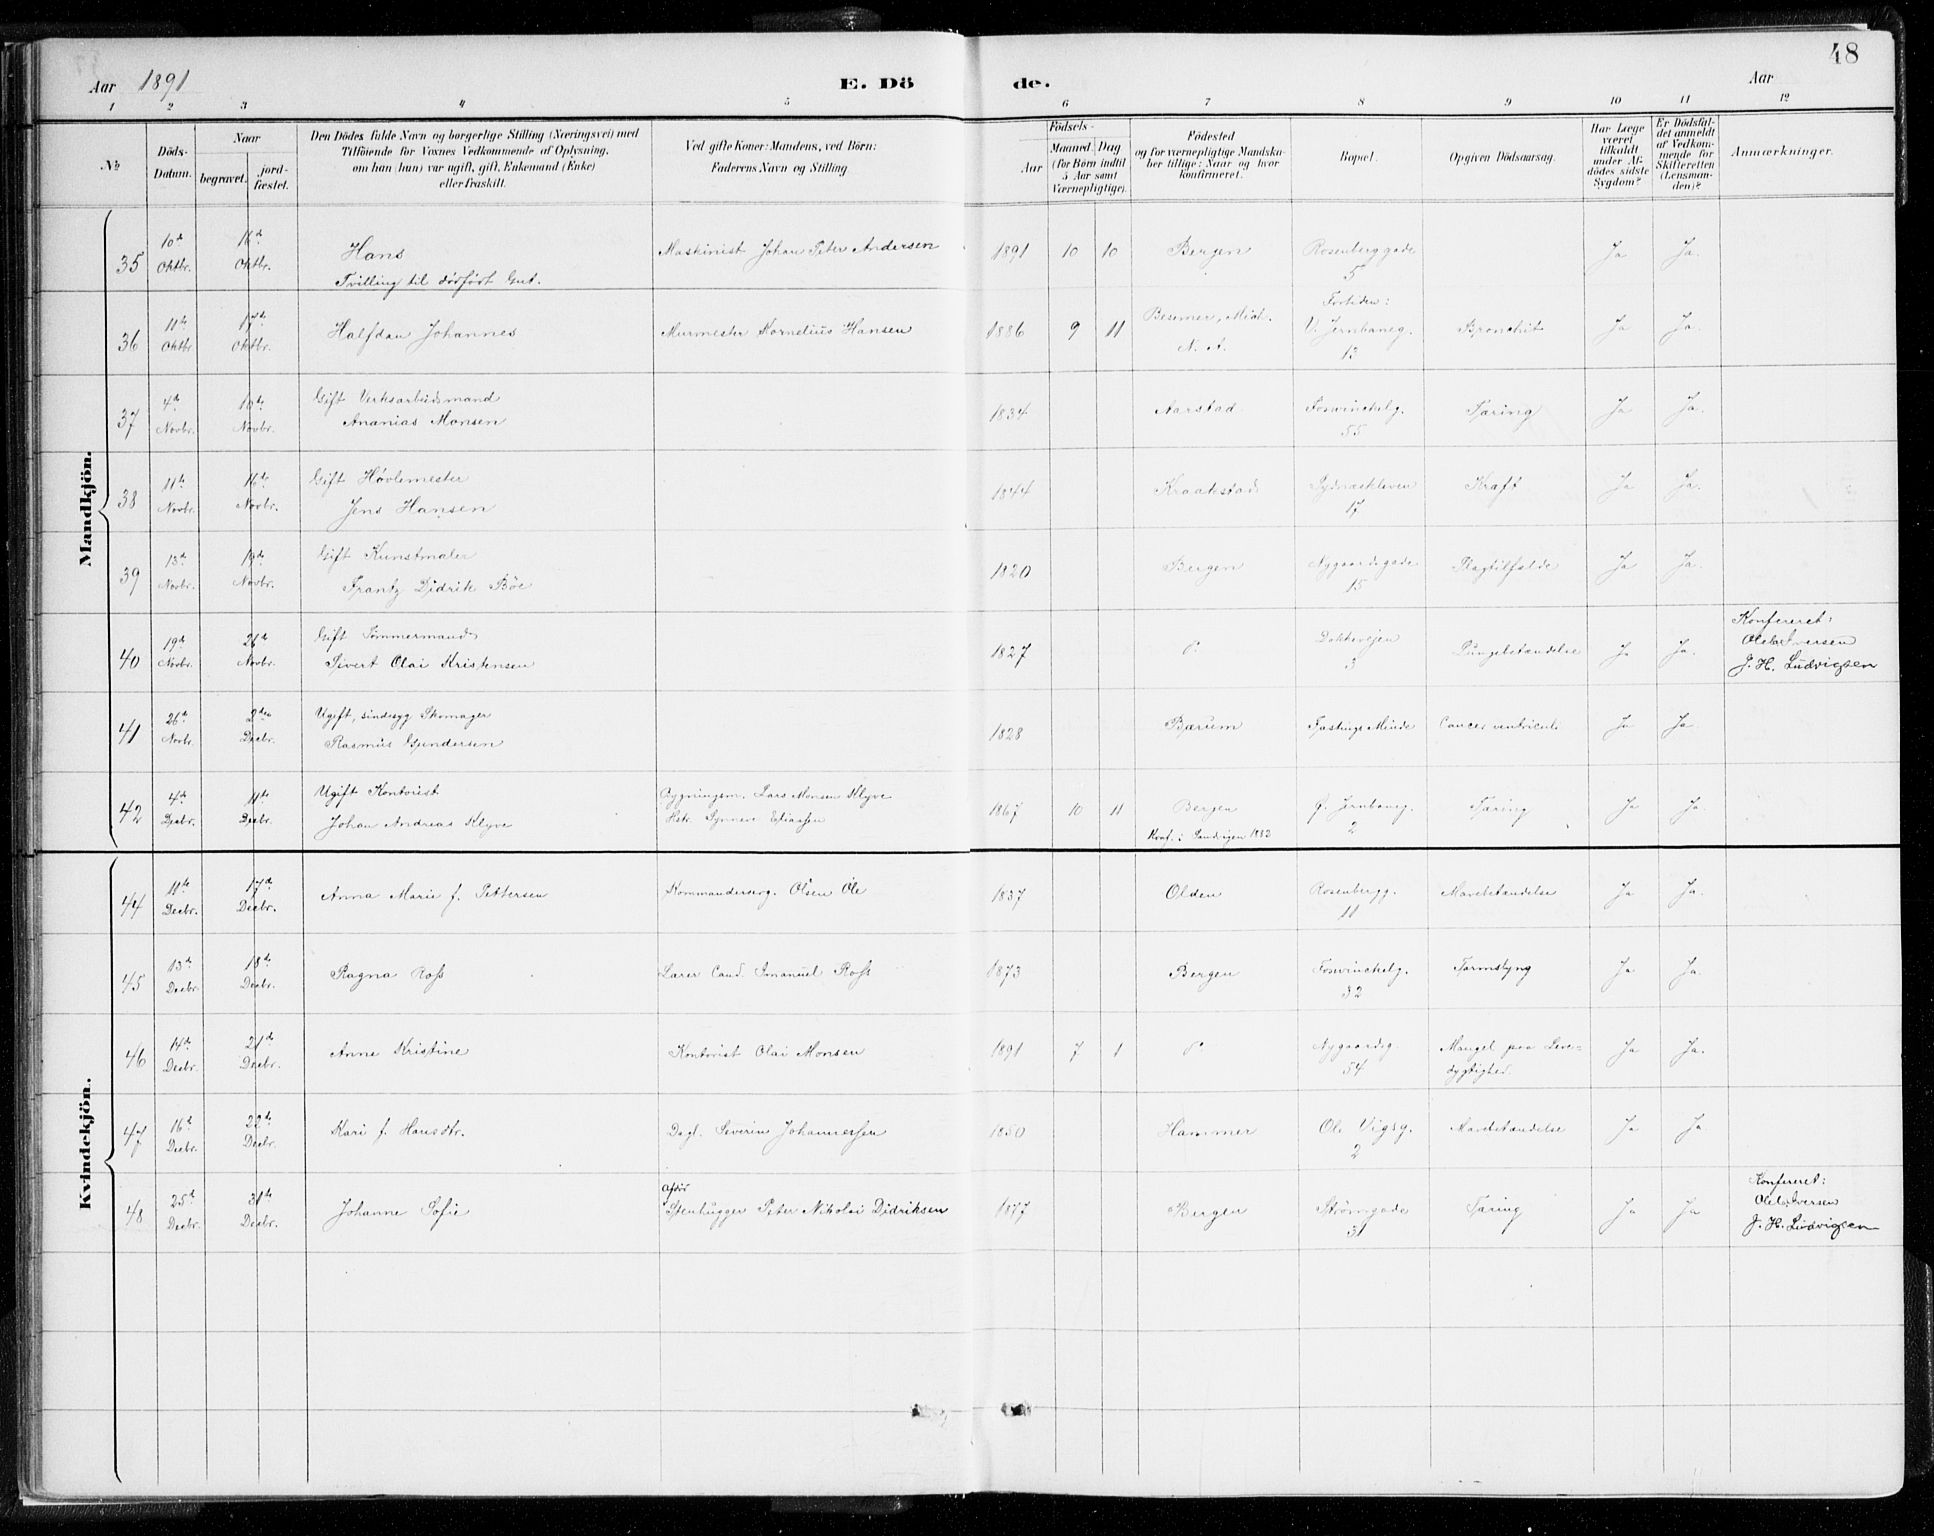 48
Aar 1891 E. Dö de. Aar
1 2 3 4 5 6 7 8 9 10 11 12
No.
Döds-Datum.
Naar
begravet.
jord-fæstet.
Den Dödes fulde Navn og borgerlige Stilling (Næringsvei) med
Tilföiende for Voxnes Vedkommende af Oplysning,
om han (hun) var ugift, gift, Enkemand (Enke)
eller fraskilt.
Ved gifte Koner: Mandens, ved Börn:
Faderens Navn og Stilling
Födsels-
Aar
Maaned. Dag
(for Börn indtil
5 Aar samt
Værnepligtige).
Födested
og for værnepligtige Mandska-
ber tillige: Naar og hvor
konfirmeret.
Bopæl.
Opgiven Dödsaarsag.
Har Læge
været
tilkaldt
under Af-
dödes sidste
Sygdom?
Er Dödsfal-
det anmeldt
af Vedkom-
mende for
Skifteretten
(Lensman-
den)?
Anmærkninger.
Mandkjön.
35 10de Oktbr. 16de Oktbr. Hans Maskinist Johan Peter Andersen 1891 10 10 Bergen Rosenberggade 5 Ja Ja.
Tvilling til dödfödt Gut.
36 11te Oktbr 17de Oktbr. Halfdan Johannes Murmester Kornelius Hansen 1886 9 11 Besemer, Mich. N. A. Fortiden: V. Jernbaneg. 13 Bronchit Ja Ja.
37 4de Novbr. 10de Novbr. Gift Verksarbeidsmand
Ananias Monsen 1834 Aarstad Foswinckelg. 55 Tæring Ja Ja.
38 11te Novbr. 16de Novbr. Gift Høvlemester
Jens Hansen 1844 Kraakstad Sydnæskleven 17 Kræft Ja Ja.
39 13de Novbr. 19de Novbr. Gift Kunstmaler
Frantz Didrik Böe 1820 Bergen Nygaardsgade 15 Slagtilfælde Ja Ja.
40 19de Novbr. 26de Novbr. Gift Tömmermand
Sivert Olai Kristensen 1827 do. Dokkeveien 3 Lungebetændelse Ja Ja. Konfereret:
Iversen
J. H. Ludvigsen
41 26de Novbr. 2den Decbr. Ugift, sindssyg Skomager
Rasmus Gundersen 1828 Bærum Fastings Minde Cancer ventriculi Ja Ja
42 4de Decbr. 11te Decbr. Ugift Kontorist Bygningsm. Lars Monsen Klyve
Johan Andreas Klyve Hstr. Synneve Eliassen 1867 10 11 Bergen Konf. i Sandvigen 1882 Ø. Jernbaneg. 2 Tæring Ja Ja.
Kvindekjön.
44 11te Decbr. 17de Decbr. Anna Marie f. Pettersen Kommandersrg. Olsen Ole 1837 Olden Rosenbergg. 11 Mavebetændelse Ja Ja.
45 13de Decbr. 18de Decbr. Ragna Ross Lærer Cand. Imanuel Ross 1873 Bergen Foswinckelg. 32 Tarmslyng Ja Ja.
46 14de Decbr. 21de Decbr. Anne Kristine Kontorist Olai Monsen 1891 7 1 do. Nygaardsg. 54 Mangel paa Leve-
dygtighed. Ja Ja.
47 16de Decbr. 22de Decbr. Kari f. Hansdtr. Dagl. Severin Johannessen 1850 Hammer Ole Vigsg. 2 Mavebetændelse Ja Ja
48 25de Decbr. 31te Decbr. Johanne Sofie afdöd Stenhugger Peter Nikolai Didriksen 1877 Bergen Strömgade 31 Tæring Ja Ja Konfereret:
Iversen
J. H. Ludvigsen